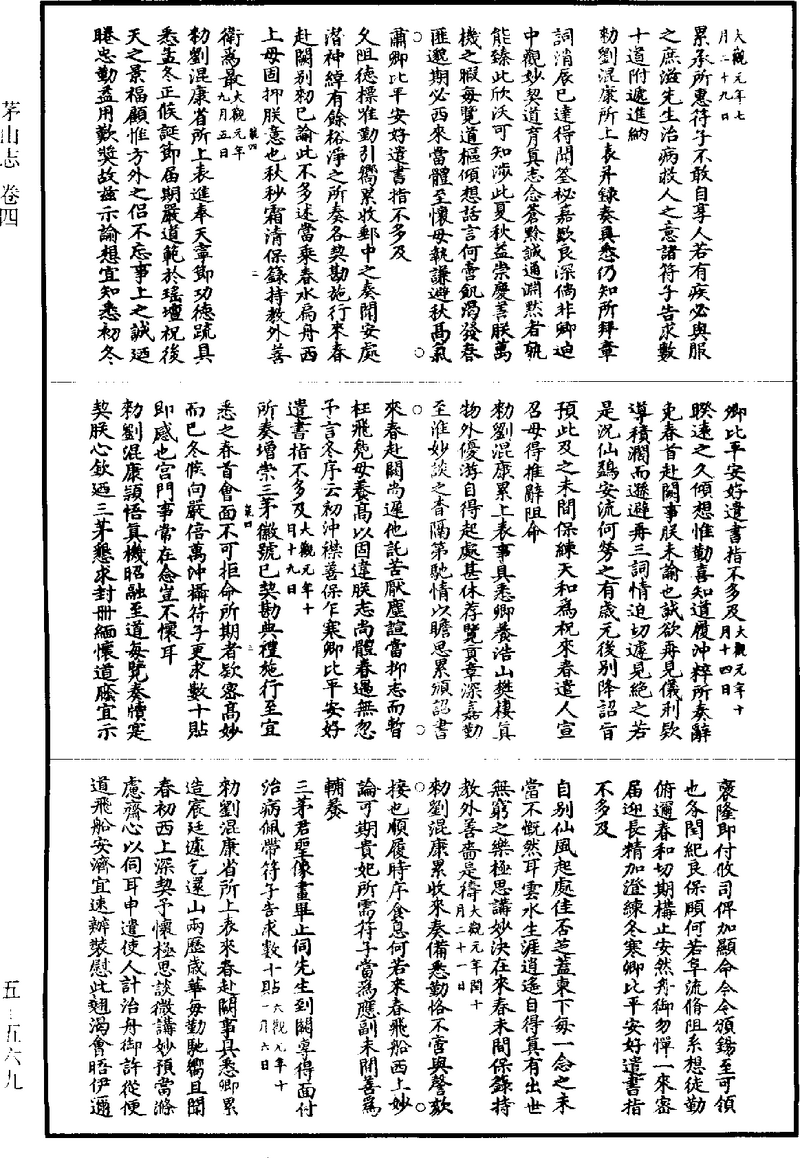 大觀元年七
月二十九日
累承所惠符子不敢自享人若有疾必與服
之庶滋先生治病救人之意諸符子告求數
十道附遞進納
勑劉混康所上表并錄奏具悉仍知所拜章
詞消辰已達得問答祕嘉歎良深倘非卿迫
中觀妙契道育真志念蒼黔誠通淵默者孰
能臻此欣沃可知涉此夏秋益崇慶善朕萬
機之暇每覽道樞傾想話言何啻飢渴發春
匪邈期必西來當體至懷毋執謙避秋髙氣
肅卿比平安好遣書指不多及
久阻德標准勤引嚮累收郵中之奏聞安處
潛神綽有餘裕淨之所奏各契勘施行來春
赴闕别勑已諭此不多述當乗春水扁舟西
上毋固抑朕意也秋杪霜清保籙持教外善
衛爲最大觀元年
九月五日
勑劉混康省所上表進奉天寧節功德䟽具
悉孟冬正候誕節届期嚴道範於瑶壇祝後
天之景福顧惟方外之侣不忘事上之誠迺
睠忠勤益用歎奬故兹示諭想宜知悉初冬
卿比平安好遣書指不多及大觀元年十
月十四日
睽遠之久傾想惟勤喜知道履沖粹所奏辭
免春首赴闕事朕未諭也誠欲再見儀刑欵
導積瀾而遜避再三詞情迫切遽見絶之若
是況仙鷁安流何勞之有歲元後别降詔旨
預此及之未間保練天和爲祝來春遣人宣
召毋得推辭阻命
勑劉混康累上表事具悉卿養浩山樊棲真
物外優游自得起處甚休荐覽貢章深嘉勤
至淮妙談之杳隔第馳情以瞻思累頒詔書
來春赴闕尚遲他託苦厭塵諠當抑志而暫
枉飛鳬毋養髙以固違朕志尚體春遇無忽
予言冬序云初沖襟善保乍寒卿比平安好
遣書指不多及大觀元年十
月十九日
所奏增崇三茅徽號已契勘典禮施行至宜
悉之春首會面不可拒命所期者欵密髙妙
而已冬候向嚴倍萬沖攝符子更求數十貼
即感也宫門事常在念豈不懷耳
勑劉混康頴悟真機昭融至道每覽奏牘寔
契朕心欽迺三茅懇求封册緬懷道廕宜示
褒隆即付攸司俾加顯命令令頒錫至可領
也冬閏紀良保頤何若阜流脩阻系想徒勤
俯邇春和切期構止安然舟御勿憚一來密
届迎長精加澄練冬寒卿比平安好遣書指
不多及
自别仙風起處佳否芝蓋東下每一念之未
當不慨然耳雲水生涯逍遥自得真有出世
無窮之樂極思講妙決在來春未間保籙持
教外善嗇是禱大觀元年閏十
月二十一日
勑劉混康累收來奏備悉勤恪不啻與謦欬
接也順履時序食息何若來春飛船西上妙
論可期貴妃所需符子當爲應副未間善爲
輔養
三茅君聖像畫畢止伺先生到闕專得面付
治病佩帶符子告求數十貼大觀元年十
一月六日
勑劉混康省所上表來春赴闕事具悉卿累
造宸廷遽乞還山兩歷歲華每勤馳嚮且聞
春初西上深契予懷極思談微講妙預當滌
慮齋心以伺耳申遣使人計治舟御許從便
道飛船安濟宜速辦裝慰此翹渴會晤伊邇
茅山志 卷四
五-五六九